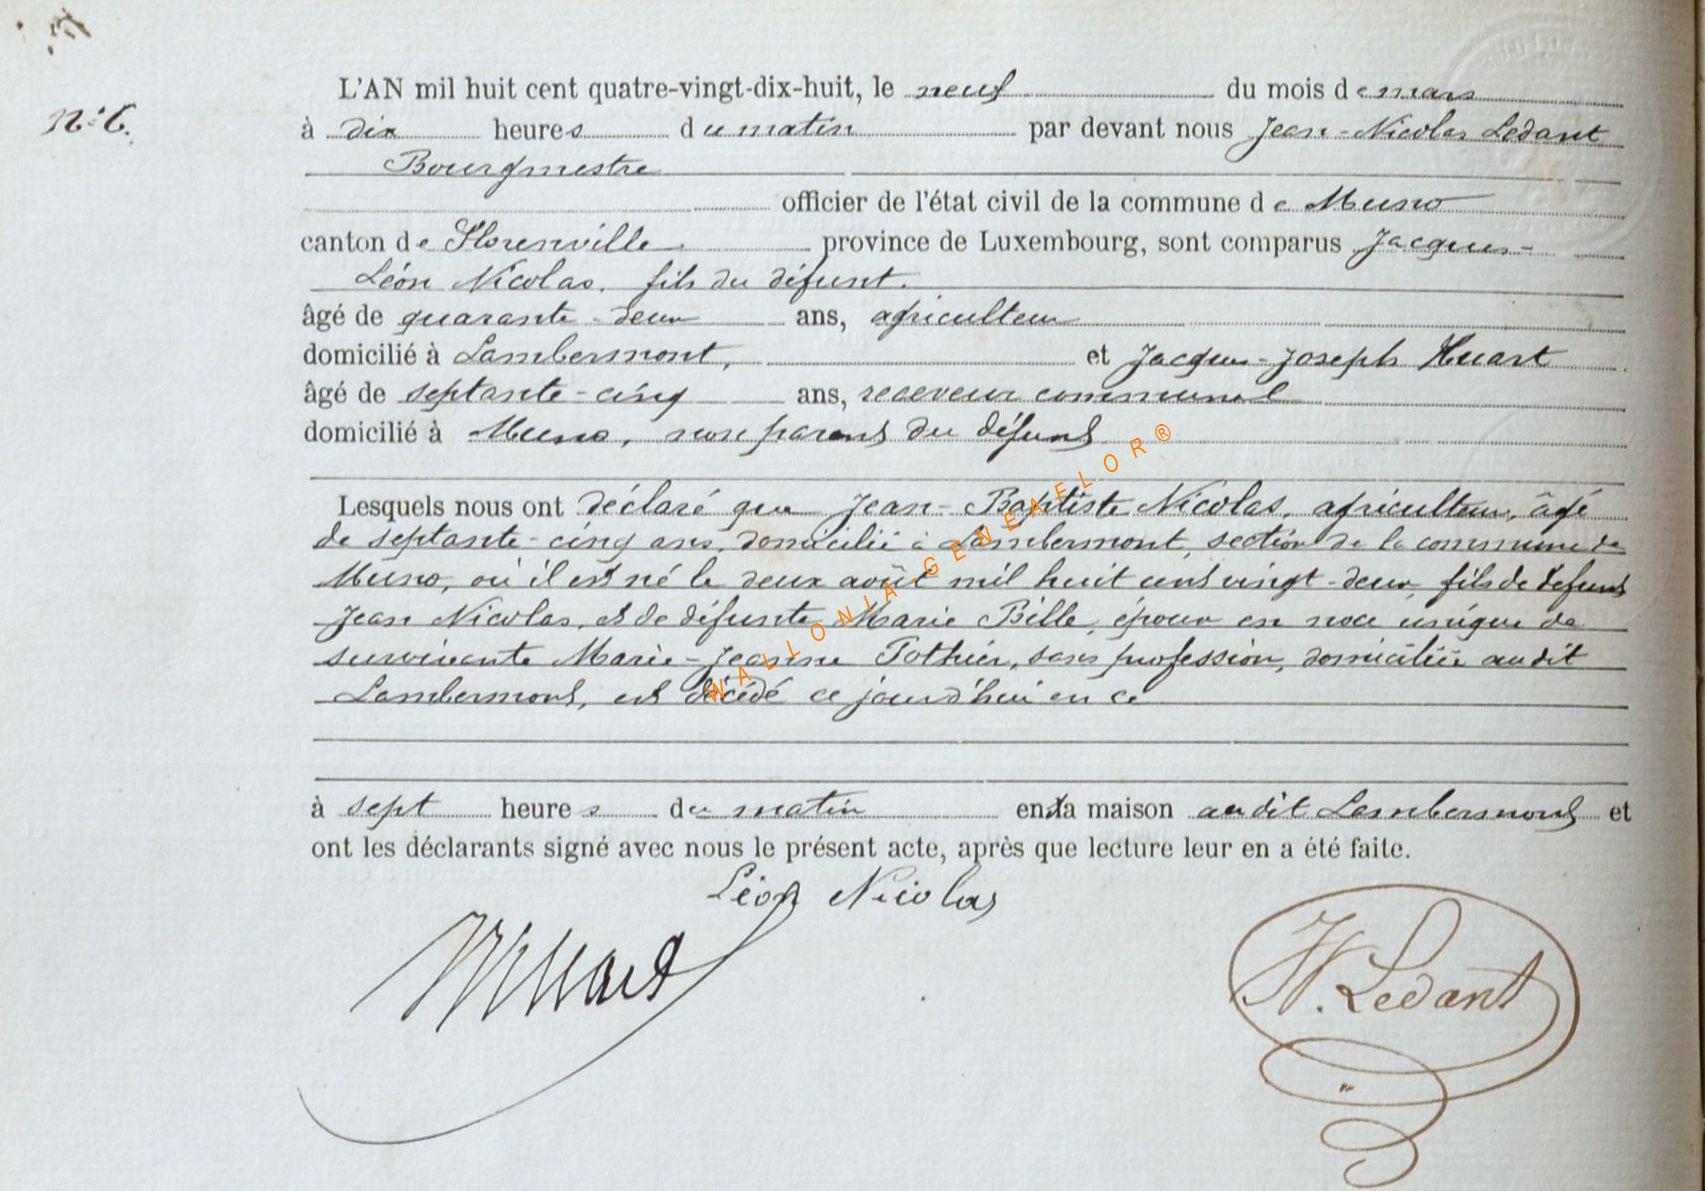 L'AN mil huit cent quatre-vingt-dix-huit, le neuf du mois de mars
N° 6.
à dix heures du matin par devant nous Jean-Nicolas Ledant
Bourgmestre
officier de l'état civil de la commune de Muno
canton de Florenville province de Luxembourg, sont comparus Jacques-
Léon Nicolas, fils du défunt.
âgé de quarante-deux ans, agriculteur
domicilié à Lambermont, et Jacques-Joseph Huart
âgé de septante-cinq ans, receveur communal
domicilié à Muno, non parent du défunt
Lesquels nous ont déclaré que Jean-Baptiste Nicolas, agriculteur, âgé
de septante-cinq ans, domicilié à Lambermont, section de la commune de
Muno, où il est né le deux août mil huit cent vingt-deux, fils de défunt
Jean Nicolas, et de défunte Marie Bille, époux en noce unique de
survivante Marie-Jeanne Pothier, sans profession, domiciliée au dit
Lambermont, est décédé ce jourd'hui en ce
à sept heures du matin en la maison au dit Lambermont et
ont les déclarants signé avec nous le présent acte, après que lecture leur en a été faite.
Léon Nicolas
Huart
N. Ledant
WALLONIA-GENEAFLOR®